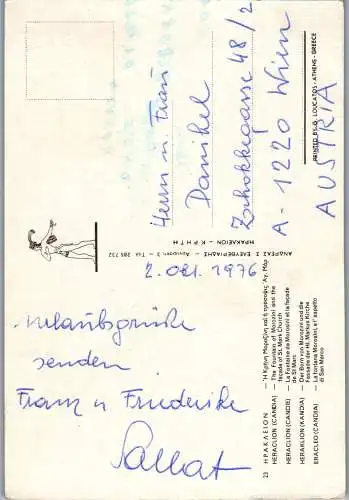 2. Okt. 1976
Urlaubsgrüße
senden
Franz u. Friederike
Sallat
Herrn u. Frau
Danihel
Zschokkegasse 48/2
A-1220 Wien
AUSTRIA
ΑΝΔΡΕΑΣ Ι. ΕΛΕΥΘΕΡΙΑΔΗΣ
ΗΡΑΚΛΕΙΟΝ - ΚΡΗΤΗ
PRINTED BY D. LOUCATOS - ATHENS - GREECE
23 ΗΡΑΚΛΕΙΟΝ — Ἡ Κρήνη Μοροζίνη καὶ ἡ πρόσοψις Ἁγ. Μάρ
HERACLION (CANDIA) — The Fountain of Morozini and the
façade of St. Mars Church
HERACLION (CANDIE) — La Fontaine de Morosini et la façade
de St Marc
HERAKLION (KANDIA) — Der Born von Morozini und die
Fassade der Hl. Markus Kirche
ERACLEO (CANDIA) — La fontana Morosini, e l' aspetto
di San Marco